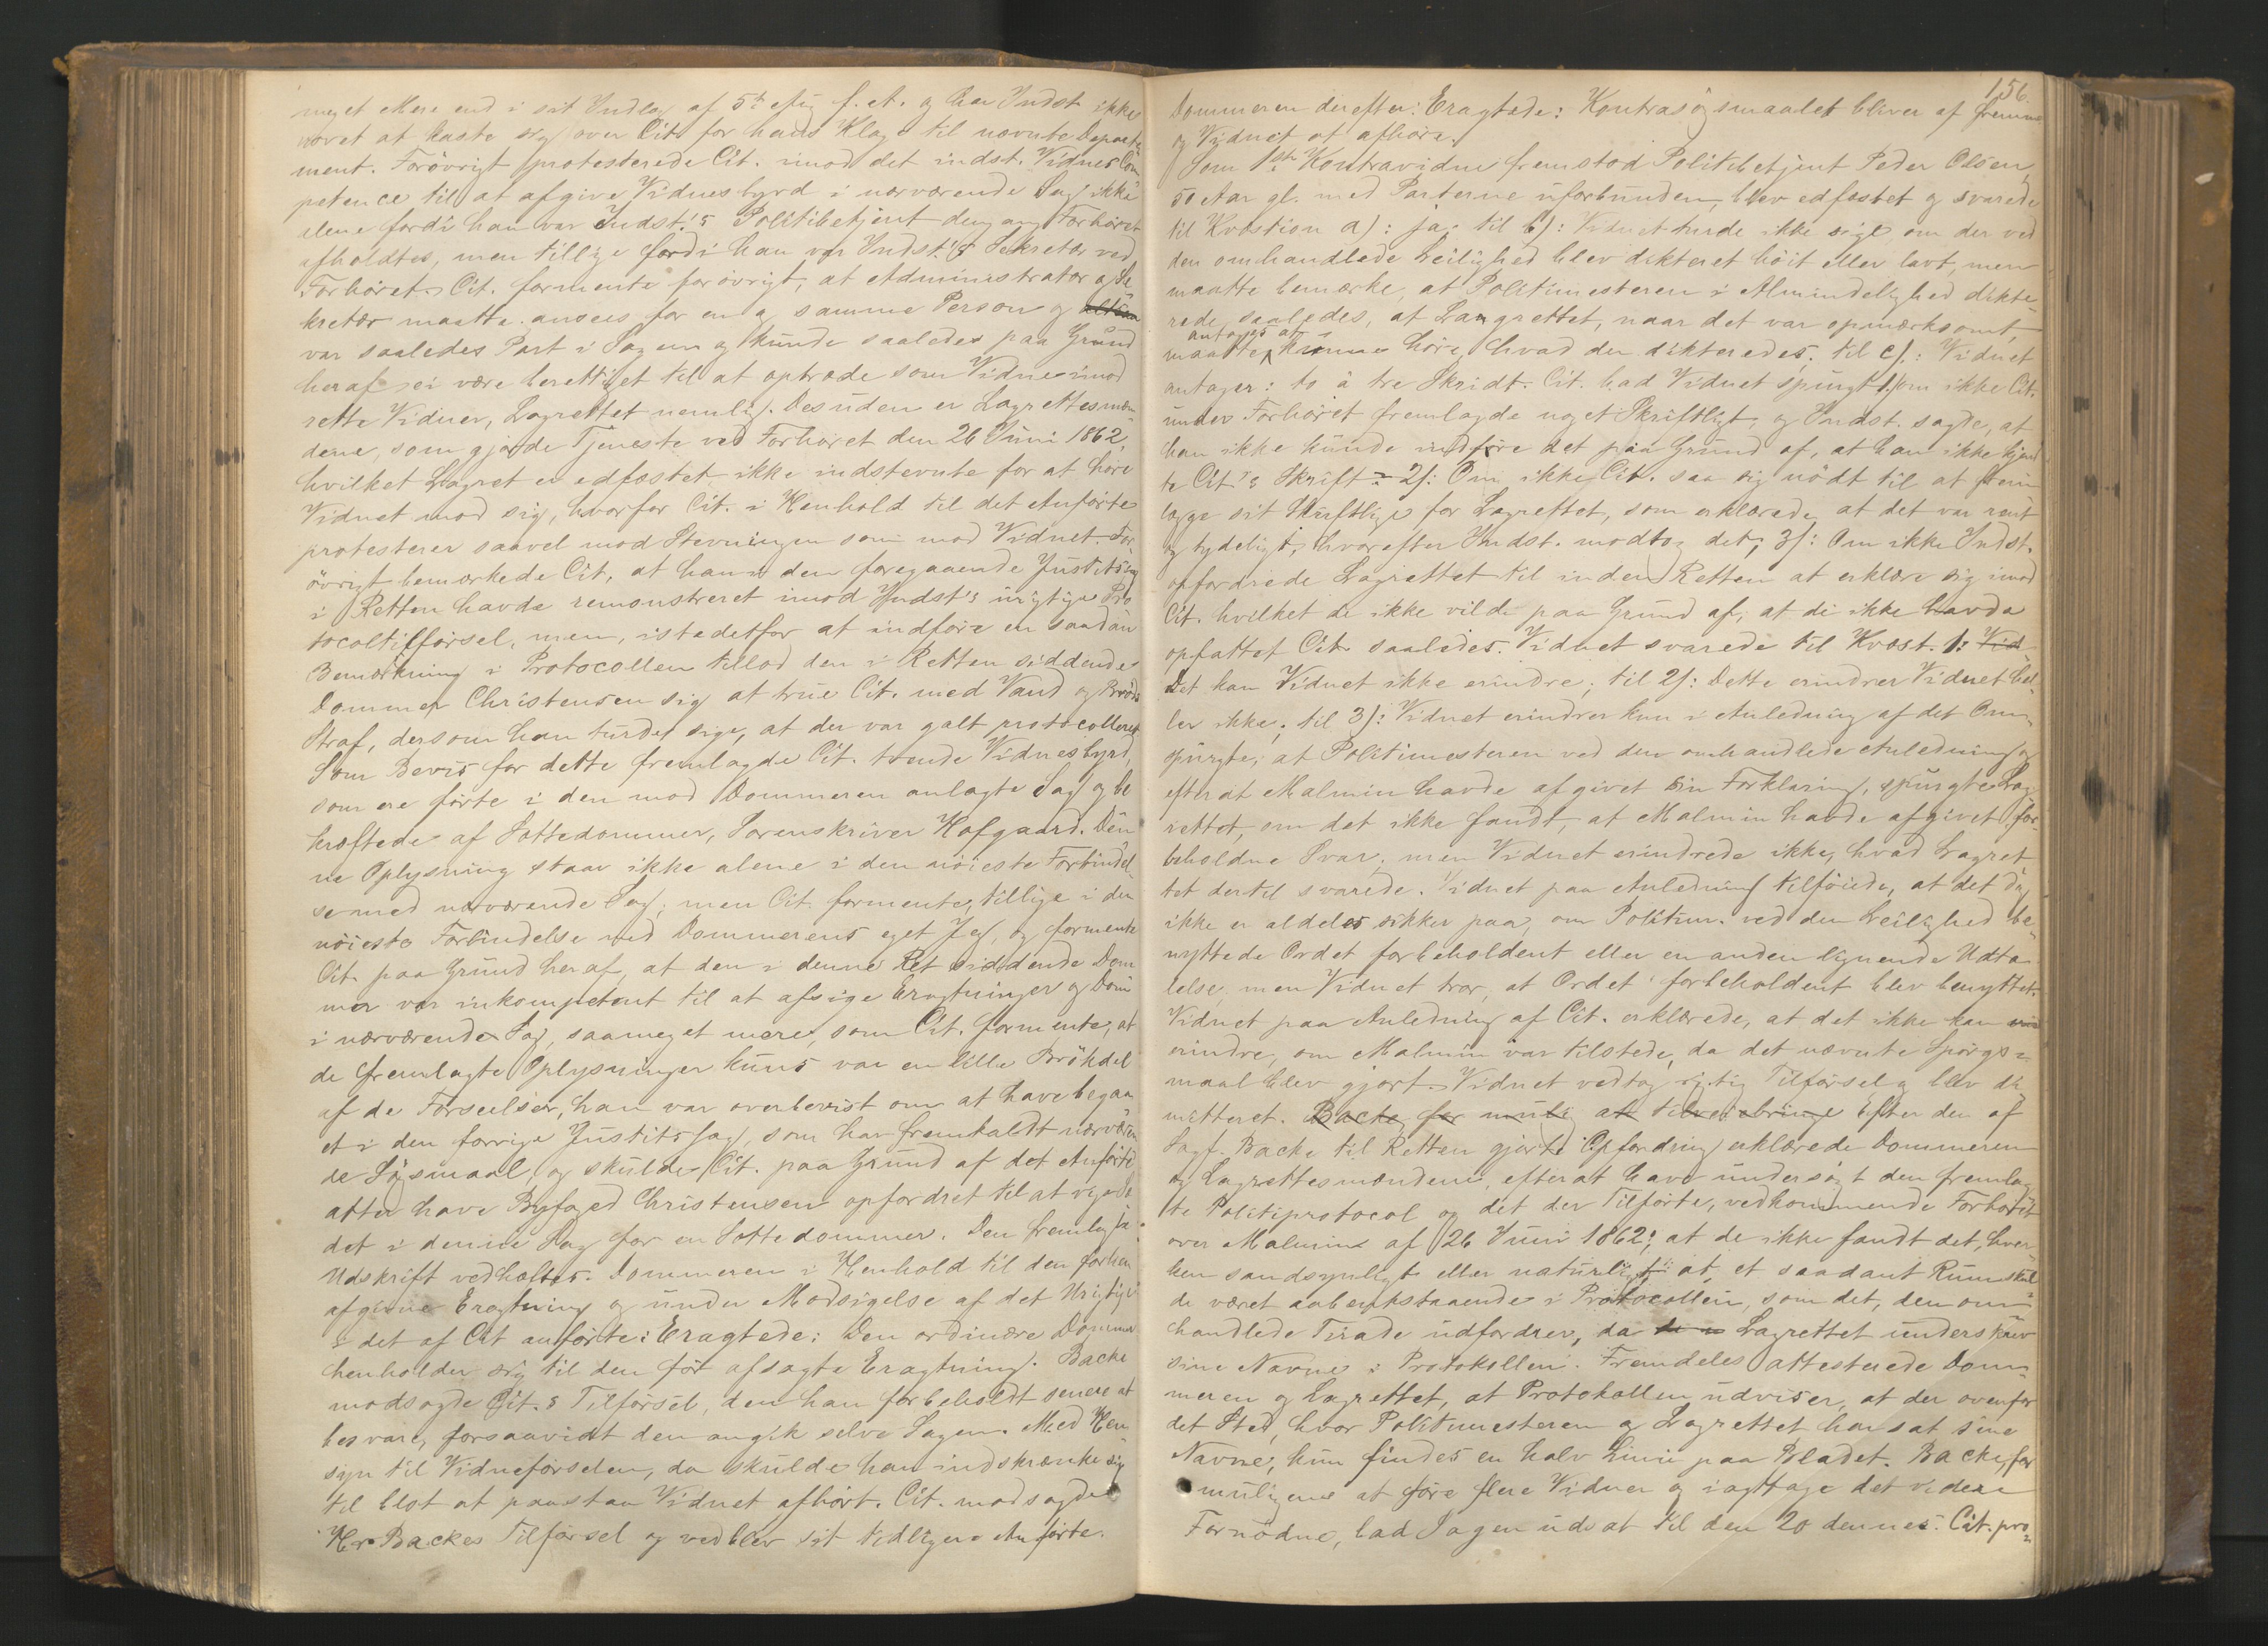 meget Mere end i sit Indlæg af 5te f. A. og har Indst ikke
været at kaste sig over Cit. for hans Klage til nævnte Departe-
ment. Forövrigt protesterede Cit. imod det indst. Vidnes Com
petence til at afgive Vidnesbyrd i nærværende Sag ikke
alene fordi han var Indst.'s Politibetjent dengang Forhöret
afholdtes, men tillige fordi han var Indst.'s Sekretær ved
Forhöret. Cit. formente forövrigt, at Administrator og Se
kretær maatte ansees for en og samme Person og
var saaledes Part i Sagen og kunde saaledes paa Grund
heraf ei være berettiget til at optræde som Vidne imod
rette Vidner, Lagrettet nemlig. Desuden er Lagrettesmæn
dene, som gjorde Tjeneste ved Forhöret den 26 Juni 1862,
hvilket Lagret er edfæstet, ikke indstevnte for at höre
Vidnet mod sig, hvorfor Cit. i Henhold til det Anförte
protesterer saavel mod Stevningen som mod Vidnet. For-
övrigt bemærkede Cit, at han i den foregaaende Justitssag
i Retten havde remonstreret imod Indst's urigtige Pro
tocoltilförsel, men, istedetfor at indföre en saadan
Bemærkning i Protocollen tillod den i Retten siddende
Dommer Christensen sig at true Cit. med Vand og Bröds
Straf, dersom han turde sige, at der var galt protocolleret
Som Bevis for dette fremlagde Cit. tvende Vidnesbyrd,
som ere förte i den mod Dommeren anlagte Sag og be
kræftede af Sættedommer, Sorenskriver Hofgaard. Den
ne Oplysning staar ikke alene i den nöieste Forbindel
se med nærværende Sag; men Cit. formente, tillige i den
nöieste Forbindelse med Dommerens eget Jeg, og formente
Cit. paa Grund heraf, at den i denne Ret siddende Dom
mer var inkompetent til at afsige Eragtninger og Dom
i nærværende Sag, saameget mere, som Cit. formente, at
de fremlagte Oplysninger kuns var en lille Brökdel
af de Forseelser, han var overbevist om at have begaa
et i den forrige Justitssag, som har fremkaldt nærværen
de Sögsmaal, og skulde Cit. paa Grund af det Anförte
atter have Byfoged Christensen opfordret til at vige Sæ
det i denne Sag for en Sættedommer. Den fremlagte
Udskrift vedhæftes. Dommeren i Henhold til den forhen
afgivne Eragtning og under Modsigelse af det Urigtige
i det af Cit anförte: Eragtede: Den ordinære Dommer
henholder sig til den för afsagte Eragtning. Backe
modsagde Cit.s Tilförsel, den han forbeholdt senere at
besvare, forsaavidt den angik selve Sagen. Med Hen
syn til Vidneförselen, da skulde han indskrænke sig
til blot at paastaa Vidnet afhört. Cit. modsagde
Hr Backes Tilförsel og vedblev sit tidligere Anförte.
156.
Dommeren derefter: Eragtede: Kontrasögsmaalet bliver at fremme
og Vidnet at afhöre.
Som 1ste Kontravidne fremstod Politibetjent Peder Olsen,
50 Aar gl. med Parterne uforbunden, blev edfæstet og svarede
til Kvæstion a): ja. til b): Vidnet turde ikke sige, om der ved
den omhandlede Leilighed blev dikteret höit eller lavt, men
maatte bemærke, at Politimesteren i Almindelighed dikte
rede saaledes, at Laugrettet, naar det var opmærksomt,
antages at
maatte kunne höre, hvad der dikteredes. til c): Vidnet
antager: to à tre Skridt. Cit. bad Vidnet spurgt 1) om ikke Cit.
under Forhöret fremlagde noget Skriftligt, og Indst. sagde, at
han ikke kunde indföre det paa Grund af, at han ikke kjend
te Cit.'s Skrift? 2): Om ikke Cit. saa sig nödt til at frem
lægge sit Skriftlige for Lagrettet, som erklærede, at det var rent
og tydeligt, hvorefter Indst. modtog det; 3): Om ikke Indst.
opfordrede Lagrettet til inden Retten at erklære sig imod
Cit. hvilket de ikke vilde paa Grund af, at de ikke havde
opfattet Cit. saaledes. Vidnet svarede til Kvæst. 1: Vid
Det kan Vidnet ikke erindre; til 2): Dette erindrer Vidnet hel-
ler ikke; til 3): Vidnet erindrer kun i Anledning af det Om-
spurgte, at Politimesteren ved den omhandlede Anledning og
efterat Malmin havde afgivet sin Forklaring, spurgte Lag
rettet, om det ikke fandt, at Malmin havde afgivet for-
beholdne Svar; men Vidnet erindrede ikke, hvad Lagret
tet dertil svarede. Vidnet paa Anledning tilföiede, at det dog
ikke er aldeles sikker paa, om Politim. ved den Leilighed be-
nyttede Ordet forbeholdent eller en anden lignende Udta
lelse, men Vidnet tror, at Ordet forbeholdent blev benyttet.
Vidnet paa Anledning af Cit. erklærede, at det ikke kan
erindre, om Malmin var tilstede, da det nævnte Spörgs-
maal blev gjort. Vidnet vedtog rigtig Tilförsel og blev di
mitteret. Backe for mulig at tilveiebringe Efter den af
Sagf. Backe til Retten gjorte Opfordring erklærede Dommeren
og Lagrettesmændene, efterat have undersögt den fremlag
te Politiprotocol og det der Tilförte, vedkommende Forhöret
over Malmin af 26 Juni 1862, at de ikke fandt det, hver-
ken sandsynligt eller naturligt at et saadant Rum skul
de været aabentstaaende i Protocollen, som det, den om-
handlede Tirade udfordrer, da Lagrettet underskrev
sine Navne i Protokollen. Fremdeles attesterede Dom-
meren og Lagrettet, at Protokollen udviser, at der ovenfor
det Sted, hvor Politimesteren og Lagrettet har sat sine
Navne, kun findes en halv Linie paa Bladet. Backe, for
muligens at före flere Vidner og iagttage det videre
Fornödne, bad Sagen udsat til den 20 dennes. Cit. pro-